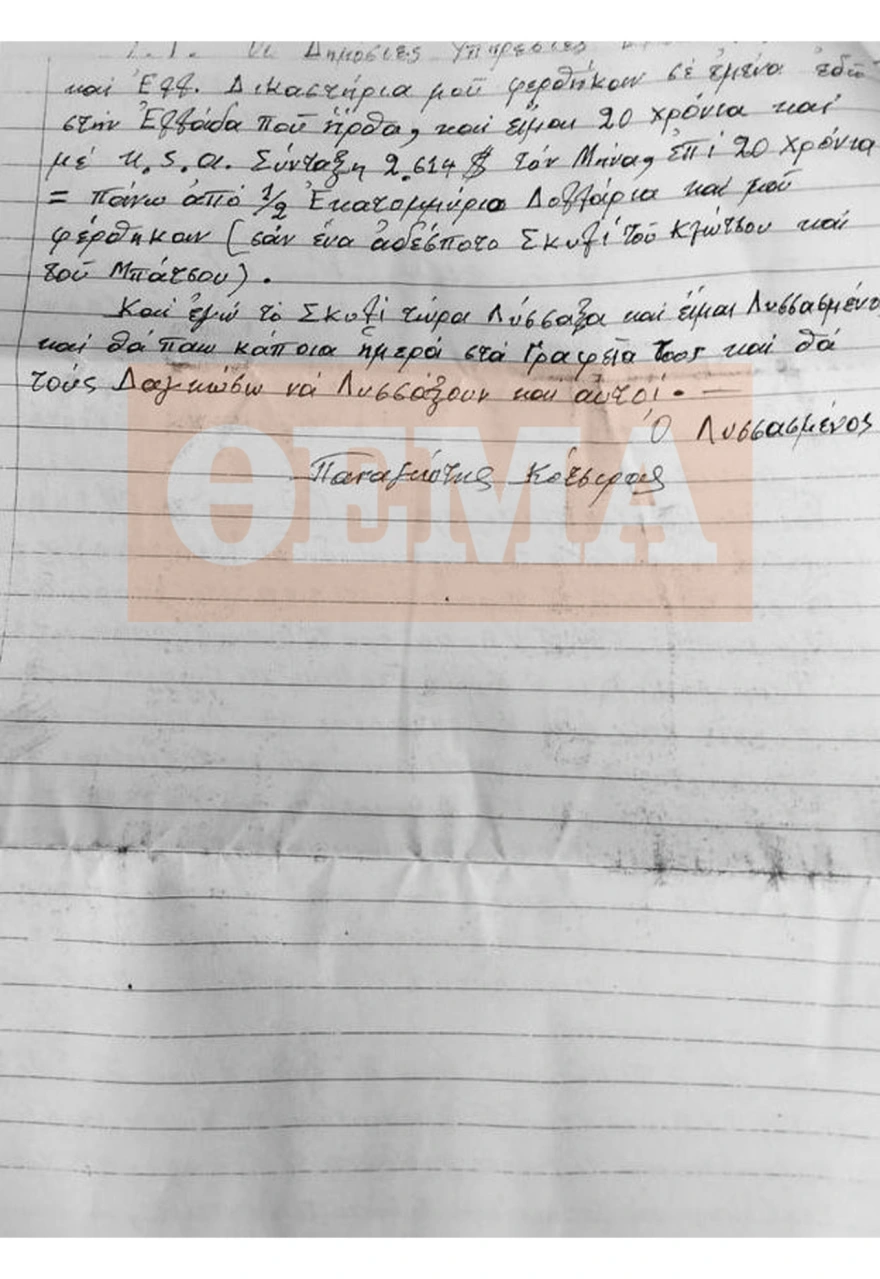 Οι Δημόσιες Υπηρεσίες
και Ἑλλ. Δικαστήρια μοῦ φερθήκαν σέ ἐμένα ἐδῶ
στήν Ἑλλάδα πού ἦρθα, καί εἶμαι 20 χρόνια καί
μέ U.S.A. Σύνταξη 2.614 $ τόν Μήνα, ἐπί 20 χρόνια
= πάνω ἀπό 1/2 Ἑκατομμύριο Δολλάρια καί μοῦ
φέρθηκαν (σάν ἕνα ἀδέσποτο Σκυλί τοῦ Κλώτσου καί
τοῦ Μπάτσου).
Καί ἐγώ τό Σκυλί τώρα Λύσσαξα καί εἶμαι Λυσσασμένο
καί θά πάω κάποια ἡμερά στά Γραφεῖα τους καί θά
τούς Δαγκώσω νά Λυσσάξουν και αὐτοί. —
Ὁ Λυσσασμένος
Παναγιώτης Κότσιρας
ΘΕΜΑ